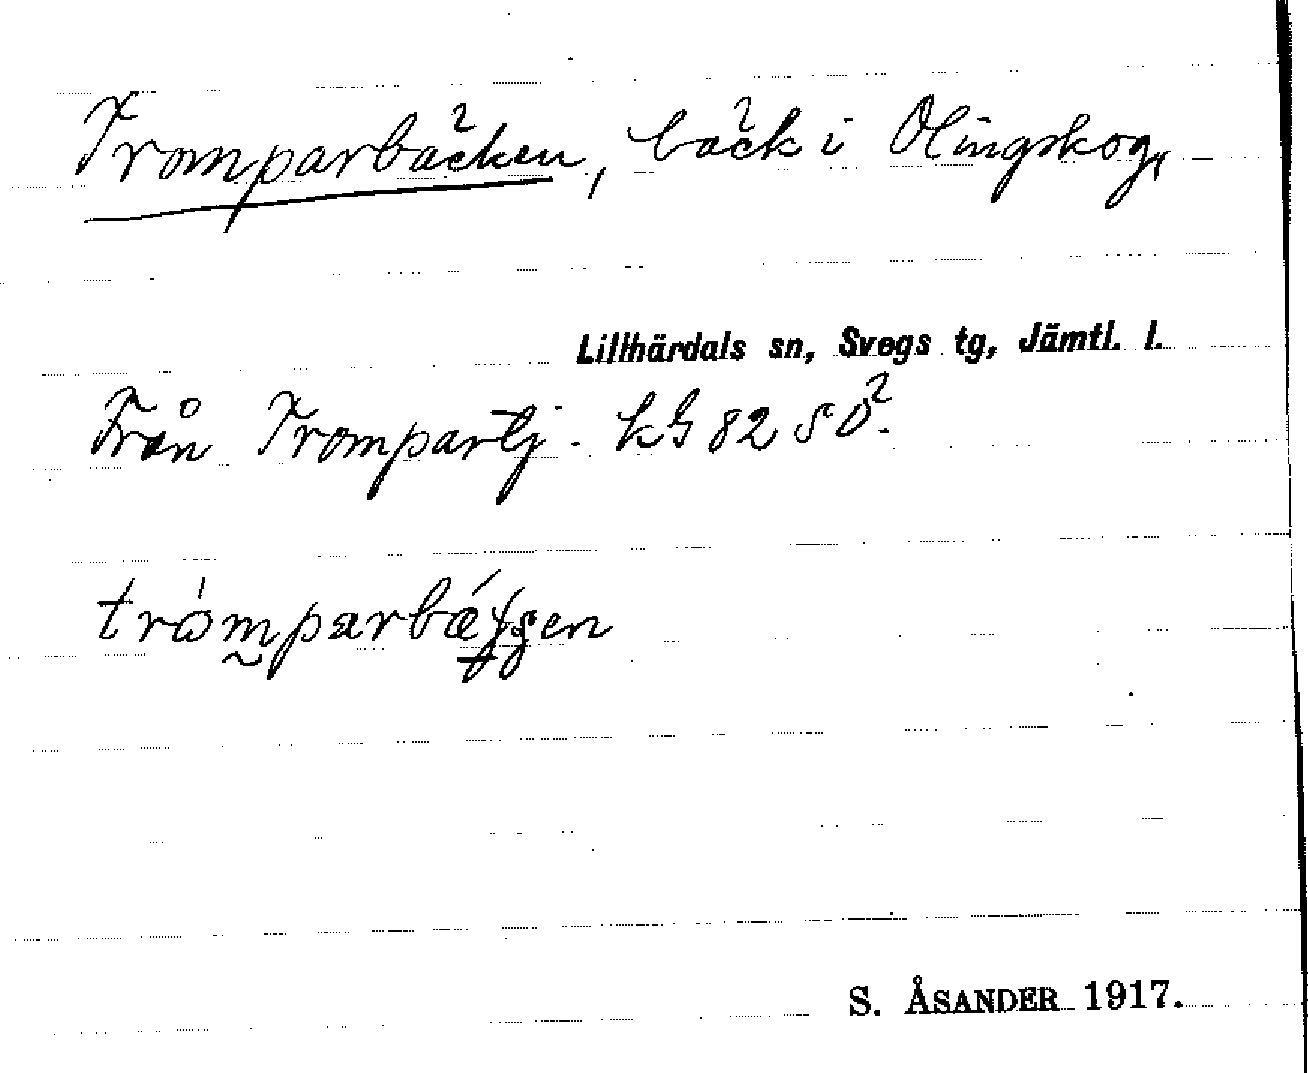 Tromparbäcken, bäck i Olingskog,
Lillhärdals sn, Svegs tg, Jämtl. l.
Från Trompartj. kG 82 SO².
S. ÅSANDER 1917.